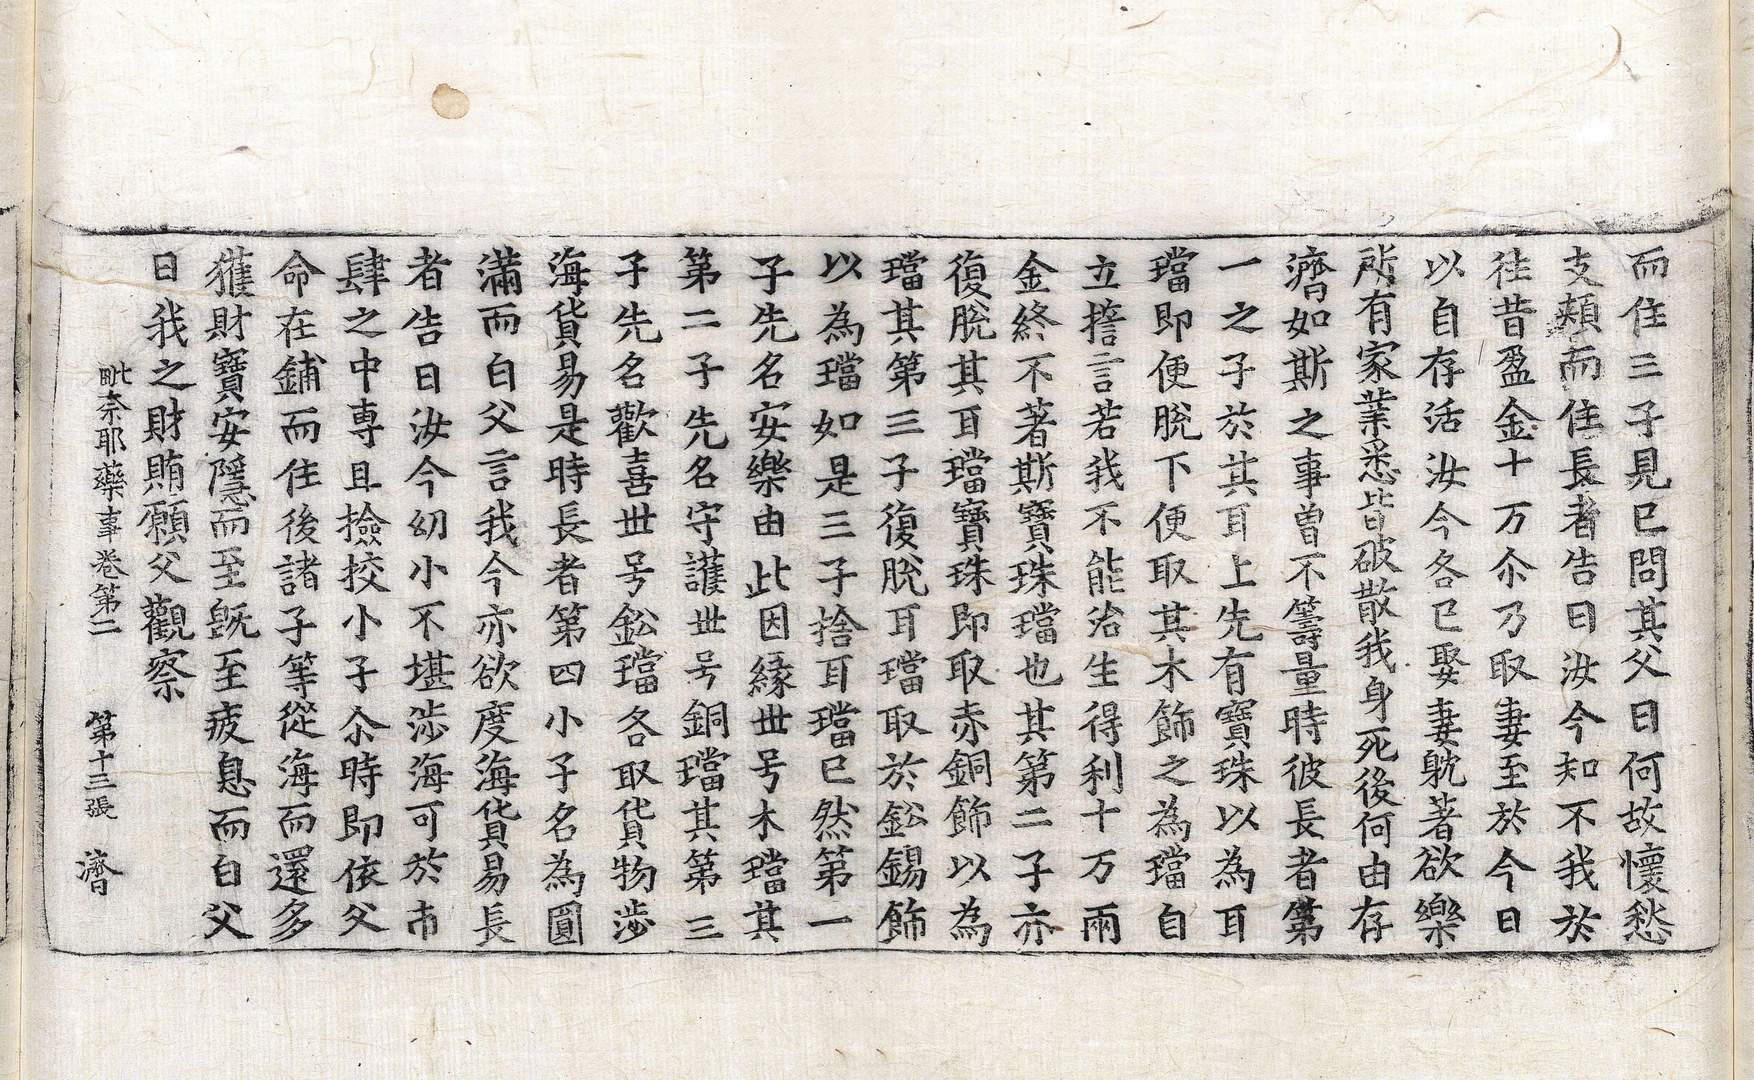 而住三子見已問其父曰何故懷愁
支頰而住長者告曰汝今知不我於
往昔盈金十万尒乃取妻至於今日
以自存活汝今各已娶妻躭著欲樂
所有家業悉皆破散我身死後何由存
濟如斯之事曽不籌量時彼長者第
一之子於其耳上先有寶珠以為耳
璫即便脫下便取其木飾之為璫自
立誓言若我不能治生得利十万兩
金終不著斯寶珠璫也其第二子亦
復脫其耳璫寶珠即取赤銅飾以為
璫其第三子復脫耳璫取於鈆錫飾
以為璫如是三子捨耳璫已然第一
子先名安樂由此因緣世号木璫其
第二子先名守護世号銅璫其第三
子先名歡喜世号鈆璫各取貨物涉
海貨易是時長者第四小子名為圓
滿而白父言我今亦欲度海貨易長
者告曰汝今幼小不堪涉海可於市
肆之中專且撿挍小子尒時即依父
命在鋪而住後諸子等從海而還多
獲財寶安隱而至旣至疲息而白父
曰我之財賄願父觀察
毗奈耶藥事卷第二 第十三張 濟